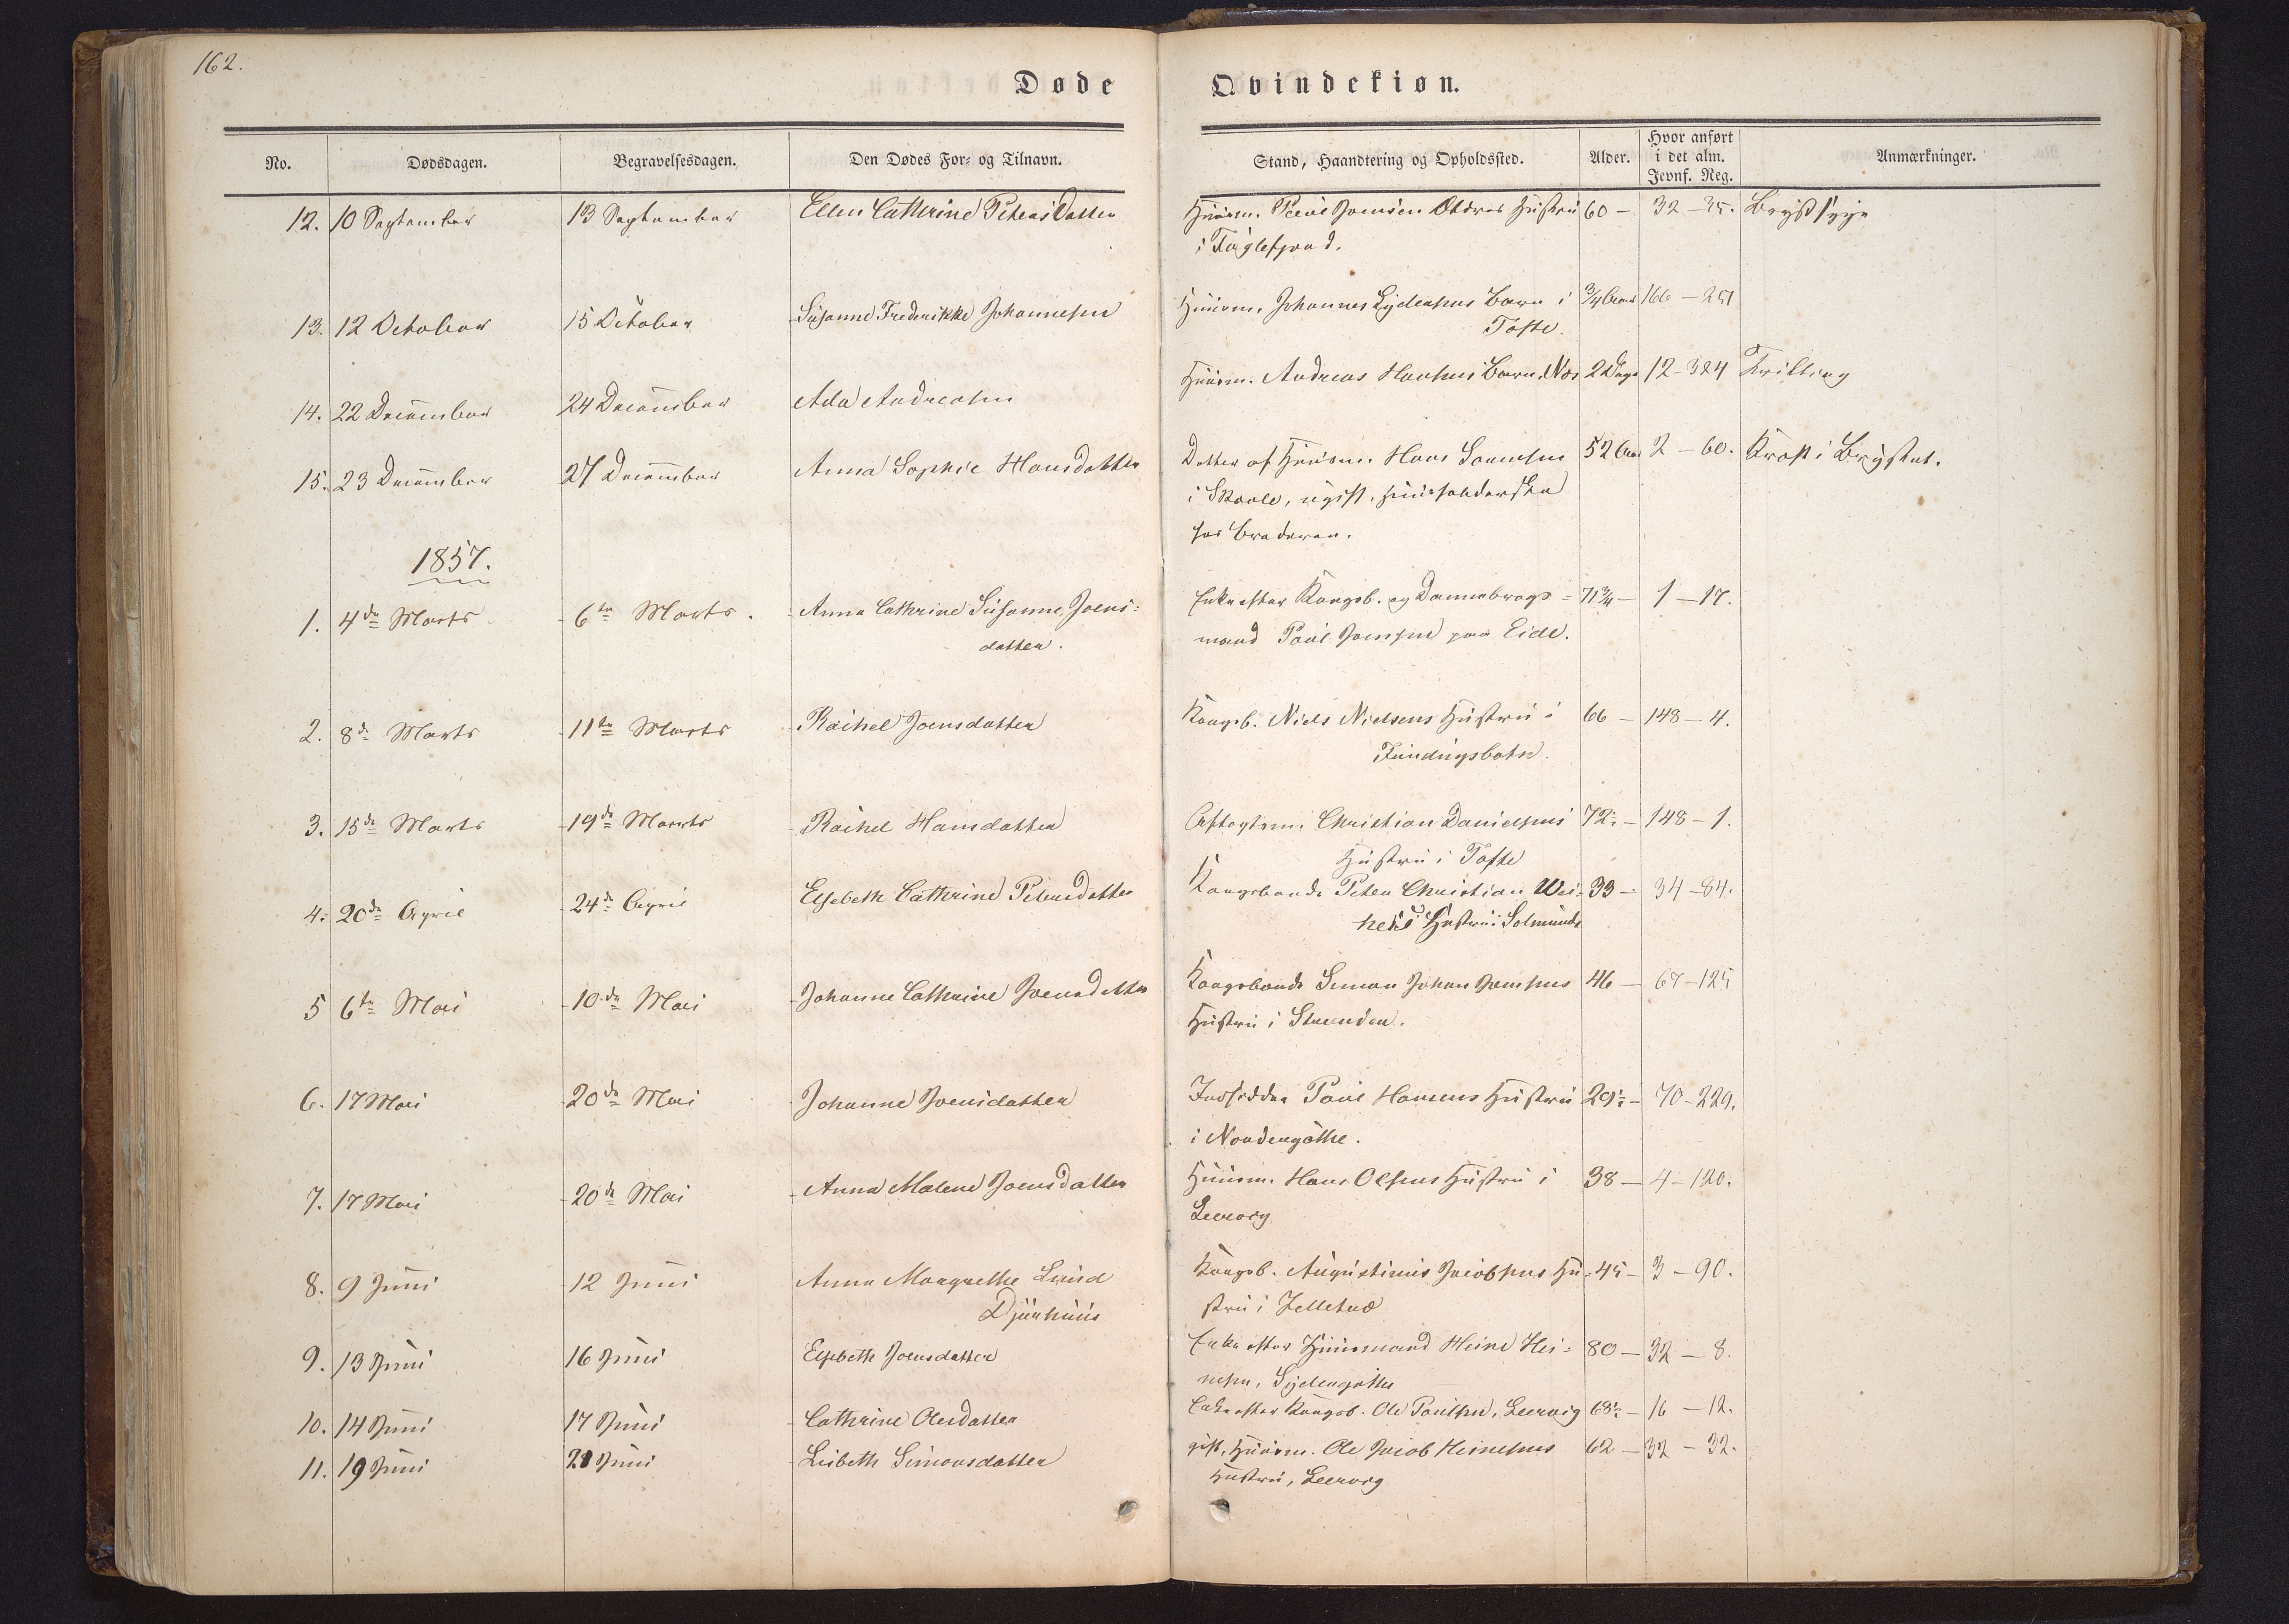 162.
Døde Qvindekiøn.
No. Dødsdagen. Begravelsesdagen. Den Dødes For- og Tilnavn. Stand, Haandtering og Opholdssted. Alder. Hvor anført i det alm. Jevnf. Reg. Anmærkninger.
12. 10 September 13 September Ellen Cathrine Petersdatter Huusm. Poul Joensen Hustru 60 – 32 – 35. Brystsyge
i Fuglefjord.
13. 12 October 15 October Susanne Frederikke Johannesen Huusm. Johannes Barn i 3/4 Aar 166 – 251
Tofte.
14. 22 December 24 December Ada Andreasen Huusm. Andreas Hansens Barn, Næs 2 Dage 12 – 324 Tvilling
15. 23 December 27 December Anna Sophie Hansdatter Datter af Huusm. Hans 52 Aar 2 – 60. Kræft i Brystet.
i Skaale, ugift, huusholderske
hos Broderen.
1857.
1. 4de Marts 6te Marts. Anna Cathrine Susanne Joens= Enke efter Kongsb. og Dannebrogs= 71 3/4 – 1 – 17.
datter. mand Poul Joensen paa Eide.
2. 8de Marts 11te Marts Rachel Joensdatter Kongsb. Niels Nielsens Hustru i 66 – 148 – 4.
Funding​sbotn.
3. 15de Marts 19de Marts Rachel Hansdatter Aftægtsm. Christian Danielsens 72 – 148 – 1.
Hustru i Tofte
4. 20de April 24de April Elsebeth Cathrine Petersdatter Kongsbonde Peter Christian Wei= 33 – 34 – 84.
hes Hustru i Solmunde
5 6te Mai 10de Mai Johanne Cathrine Joensdatter Kongsbonde Simon Johan Joensens 46 – 67 – 125
Hustru i Strænden.
6. 17 Mai 20de Mai Johanne Joensdatter Indsidder Poul Hansens Hustru 29 1/2 – 70 – 229.
i Nordregøthe.
7. 17 Mai 20de Mai Anna Malene Joensdatter Huusm. Hans Olsens Hustru i 38 – 4 – 120.
Leervig
8. 9 Juni 12 Juni Anna Margrethe Kongsb. Augustinus Jacobsens Hu= 45 – 3 – 90.
Djurhuus stru i Zelletræ
9. 13 Juni 16 Juni Elsebeth Joensdatter Enke efter Huusmand Heine Hei= 80 – 32 – 8.
nesen, Sydregøthe
10. 14 Juni 17 Juni Cathrine Olesdatter Enke efter Kongsb. Ole Poulsen, Leervig 68 1/2 – 16 – 12.
11. 19 Juni 21 Juni Lisbeth Simonsdatter gift, Huusm. Ole Jacob Heinesens 62 – 32 – 32.
Hustru, Leervig